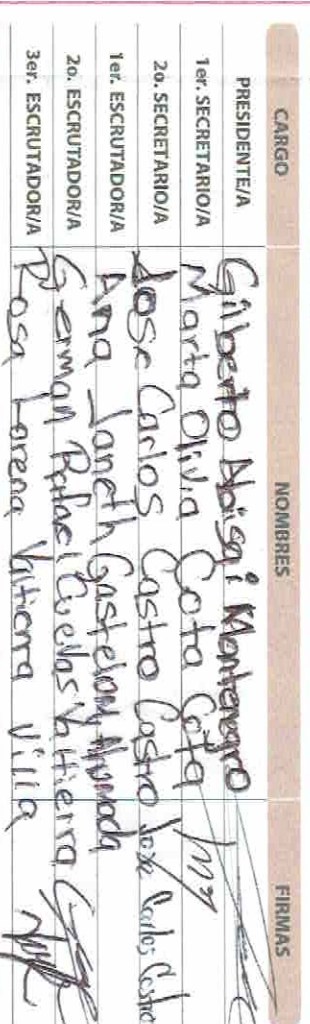 CARGO NOMBRES FIRMAS
PRESIDENTE/A Gilberto Montenegro
1er. SECRETARIO/A Marta Olivia Cota Cota
2o. SECRETARIO/A Jose Carlos Castro Castro Jose Carlos Castro
1er. ESCRUTADOR/A Ana Janeth Gastelum Ahumada
2o. ESCRUTADOR/A German Rafael Cuellas Valtierra
3er. ESCRUTADOR/A Rosa Lorena Valtierra Villa